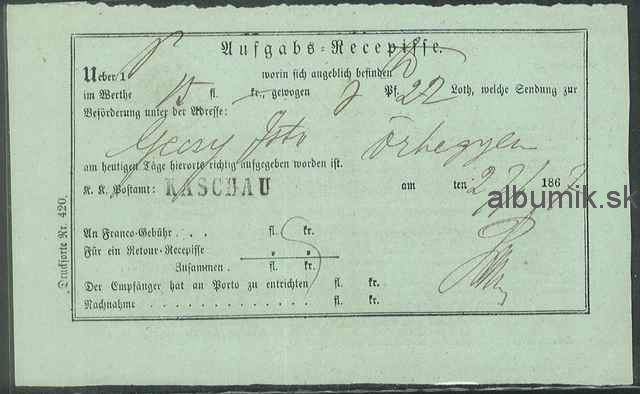 Aufgabs-Recepisse.
Ueber 1 worin sich angeblich befinden
im Werthe 15 fl. kr., gewogen Pf. 22 Loth, welche Sendung zur
Beförderung unter der Adresse:
Georg Örhegyen
am heutigen Tage hierorts richtig aufgegeben worden ist.
K. K. Postamt: KASCHAU am ten 186
albumik.sk
An Franco-Gebühr . . . fl. kr.
Für ein Retour-Recepisse " "
Zusammen . fl. kr.
Der Empfänger hat an Porto zu entrichten fl. kr.
Nachnahme . . . . . . . . . . . . . fl. kr.
Drucksorte Nr. 420.